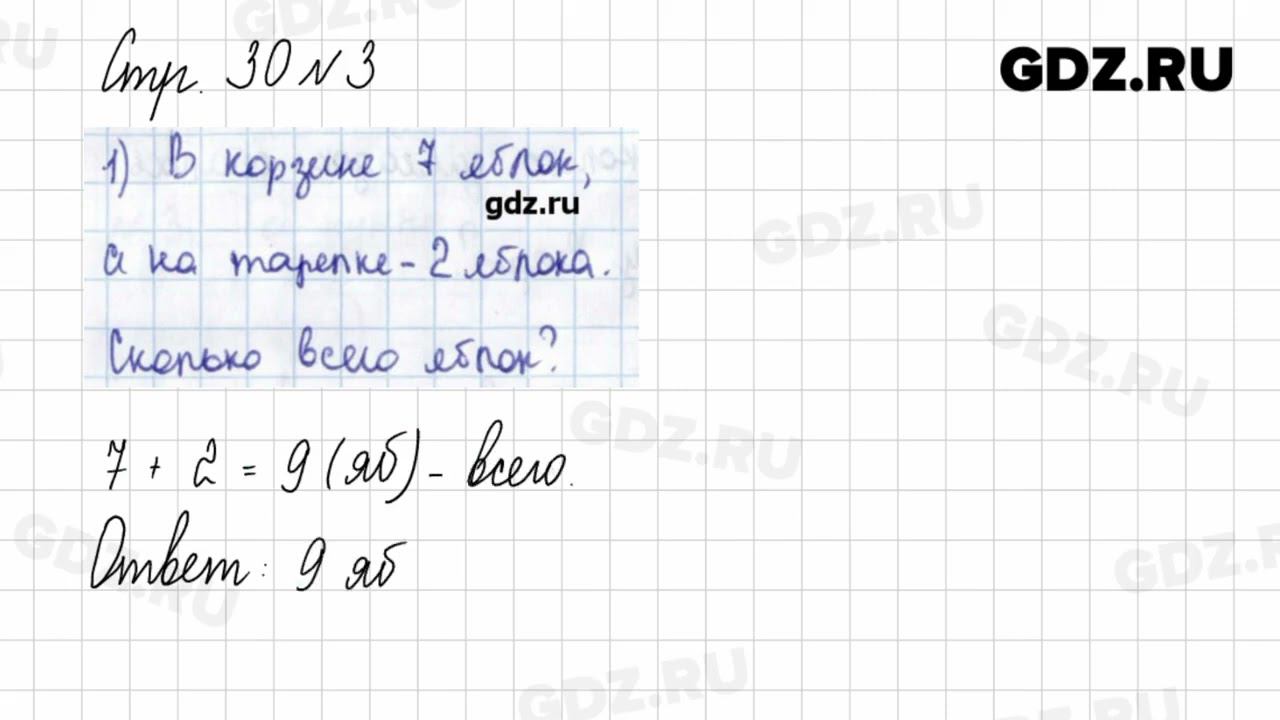 Стр. 30 № 3
GDZ.RU
1) В корзине 7 яблок,
gdz.ru
а на тарелке - 2 яблока.
Сколько всего яблок?
7 + 2 = 9 (яб) - всего.
Ответ: 9 яб
GDZ.RU
GDZ.RU
GDZ.RU
GDZ.RU
GDZ.RU
GDZ.RU
GDZ.RU